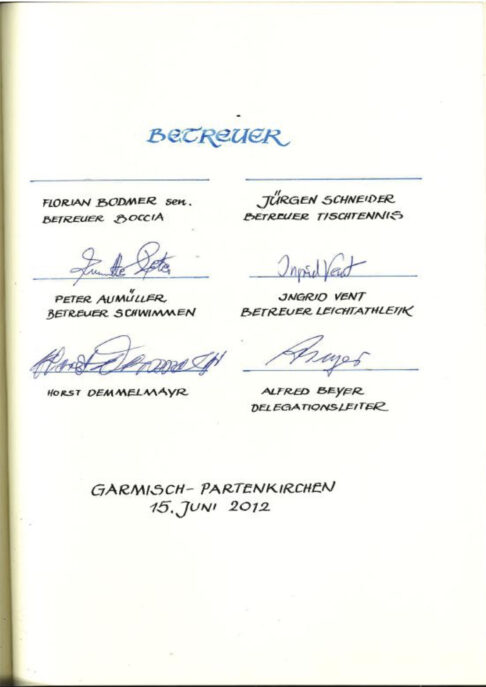 BETREUER
FLORIAN BODMER sen.
BETREUER BOCCIA
JÜRGEN SCHNEIDER
BETREUER TISCHTENNIS
Ingrid Vent
PETER AUMÜLLER
BETREUER SCHWIMMEN
INGRID VENT
BETREUER LEICHTATHLETIK
HORST DEMMELMAYR
ALFRED BEYER
DELEGATIONSLEITER
GARMISCH-PARTENKIRCHEN
15. JUNI 2012